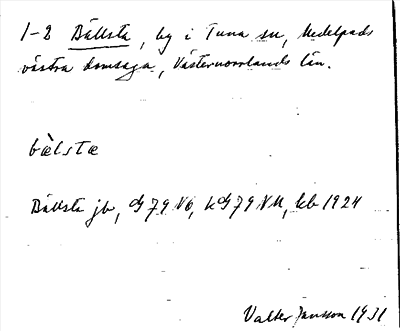 1-2 Bällsta, by i Tuna sn, Medelpads
västra domsaga, Västernorrlands län.
bèlstæ
Bällsta jb, G 79 NÖ, hG 79 NV, kb 1924
Valter Jansson 1931